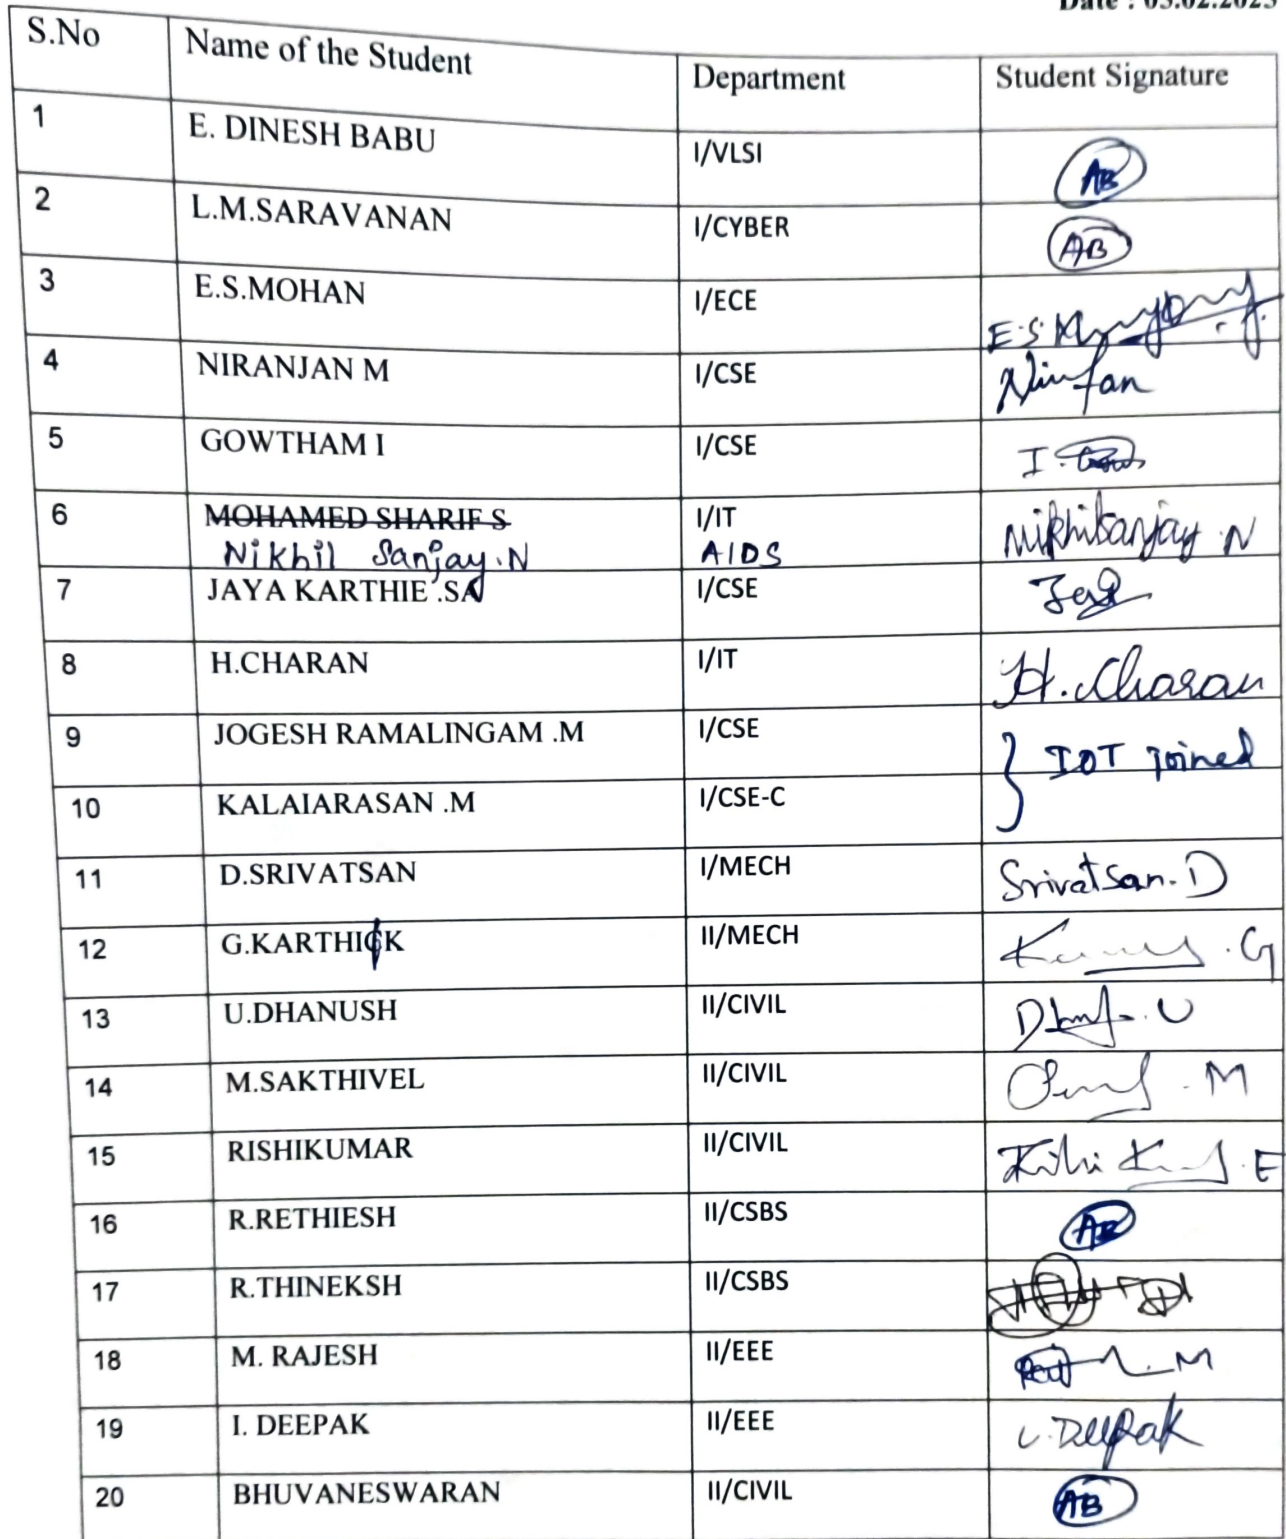 Date : 03.02.2023
S.No Name of the Student Department Student Signature
1 E. DINESH BABU I/VLSI AB
2 L.M.SARAVANAN I/CYBER AB
3 E.S.MOHAN I/ECE E.S
4 NIRANJAN M I/CSE
5 GOWTHAM I I/CSE I.
6 MOHAMED SHARIF S I/IT
Nikhil Sanjay.N AIDS Nikhilsanjay N
7 JAYA KARTHIE .SA I/CSE
8 H.CHARAN I/IT H.Charan
9 JOGESH RAMALINGAM .M I/CSE } IOT joined
10 KALAIARASAN .M I/CSE-C
11 D.SRIVATSAN I/MECH Srivatsan.D
12 G.KARTHICK II/MECH .G
13 U.DHANUSH II/CIVIL .U
14 M.SAKTHIVEL II/CIVIL .M
15 RISHIKUMAR II/CIVIL .E
16 R.RETHIESH II/CSBS AB
17 R.THINEKSH II/CSBS
18 M. RAJESH II/EEE .M
19 I. DEEPAK II/EEE I.Deepak
20 BHUVANESWARAN II/CIVIL AB